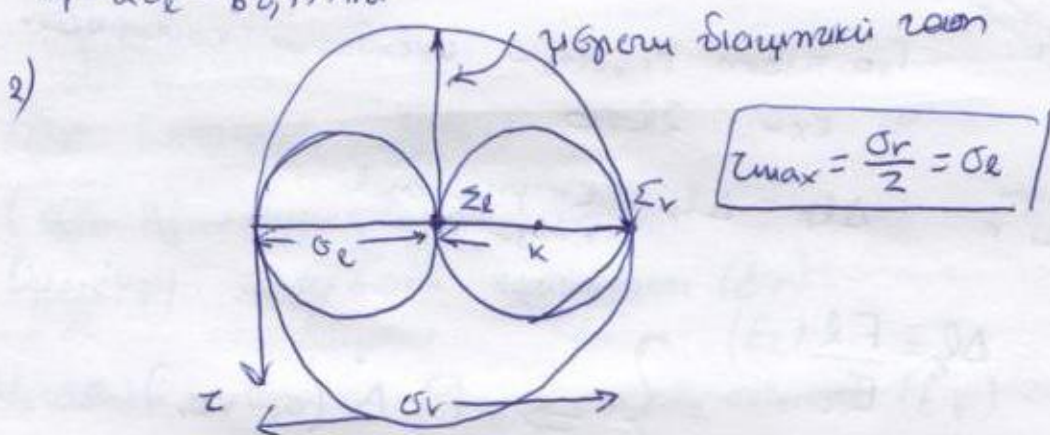 2)
μέγιστη διατμητική τάση
τmax = σr/2 = σℓ
Σℓ
Σr
σℓ
κ
τ
σr